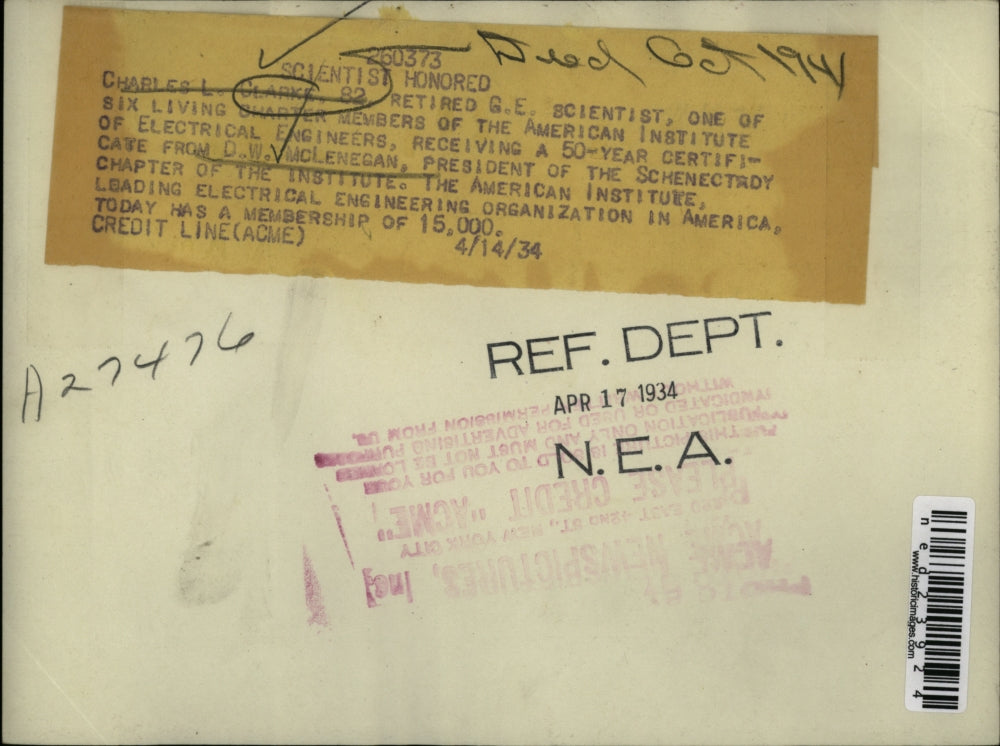 Died Oct 1941
260373
SCIENTIST HONORED
CHARLES L. CLARKE, 82, RETIRED G.E. SCIENTIST, ONE OF
SIX LIVING CHARTER MEMBERS OF THE AMERICAN INSTITUTE
OF ELECTRICAL ENGINEERS, RECEIVING A 50-YEAR CERTIFI-
CATE FROM D.W. MCLENEGAN, PRESIDENT OF THE SCHENECTADY
CHAPTER OF THE INSTITUTE. THE AMERICAN INSTITUTE,
LEADING ELECTRICAL ENGINEERING ORGANIZATION IN AMERICA,
TODAY HAS A MEMBERSHIP OF 15,000.
CREDIT LINE(ACME) 4/14/34
A27476
REF. DEPT.
APR 17 1934
N.E.A.
ACME NEWSPICTURES, Inc
220 EAST 42ND ST., NEW YORK CITY
PLEASE CREDIT "ACME"
THIS PICTURE IS SOLD TO YOU FOR YOUR
PUBLICATION ONLY AND MUST NOT BE LOANED
SYNDICATED OR USED FOR ADVERTISING PURPOSES
WITHOUT WRITTEN PERMISSION FROM US.
ned23924
www.historicimages.com